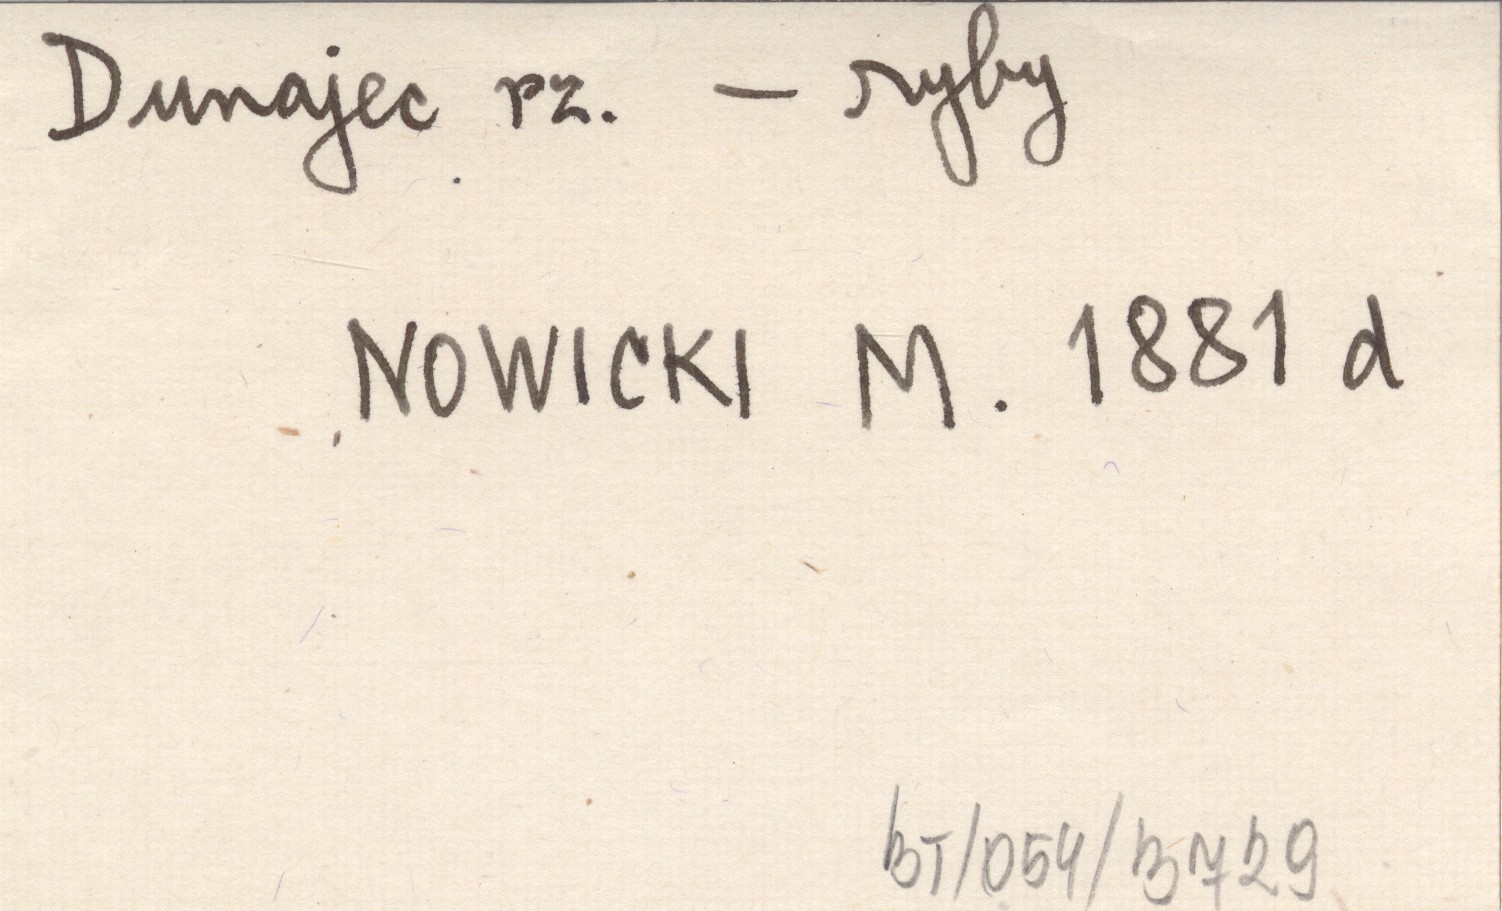 Dunajec rz. – ryby
NOWICKI M. 1881 d
BT/054/B729